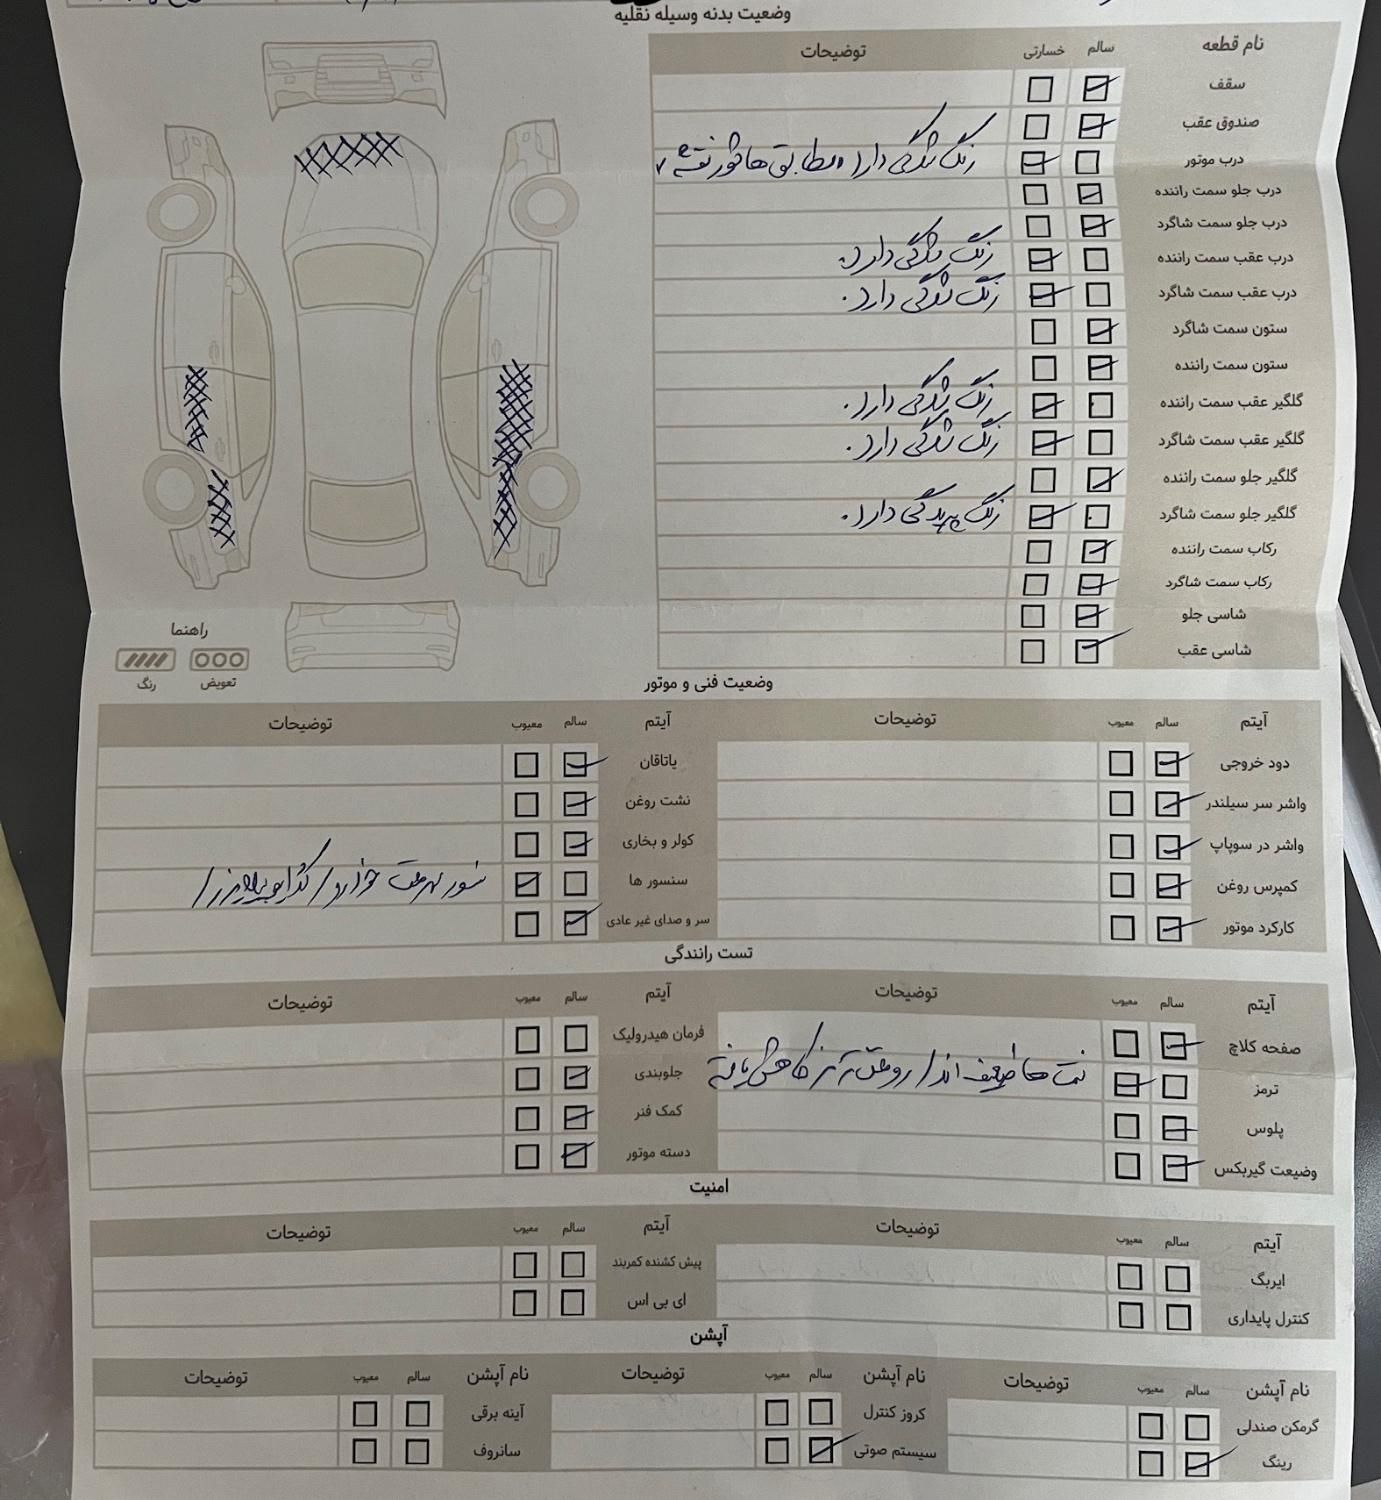 وضعیت بدنه وسیله نقلیه
نام قطعه سالم خسارتی توضیحات
سقف
صندوق عقب
درب موتور رنگ شدگی دارد مطابق هاشور نقشه
درب جلو سمت راننده
درب جلو سمت شاگرد
درب عقب سمت راننده رنگ شدگی دارد.
درب عقب سمت شاگرد رنگ شدگی دارد.
ستون سمت شاگرد
ستون سمت راننده
گلگیر عقب سمت راننده رنگ شدگی دارد.
گلگیر عقب سمت شاگرد رنگ شدگی دارد.
گلگیر جلو سمت راننده
گلگیر جلو سمت شاگرد رنگ پریدگی دارد.
رکاب سمت راننده
رکاب سمت شاگرد
شاسی جلو
شاسی عقب
راهنما
تعویض رنگ
وضعیت فنی و موتور
آیتم سالم معیوب توضیحات آیتم سالم معیوب توضیحات
دود خروجی یاتاقان
واشر سر سیلندر نشت روغن
واشر در سوپاپ کولر و بخاری
کمپرس روغن سنسور ها
کارکرد موتور سر و صدای غیر عادی
تست رانندگی
آیتم سالم معیوب توضیحات آیتم سالم معیوب توضیحات
صفحه کلاچ فرمان هیدرولیک
ترمز لنت ها ضعیف اند / روغن ترمز کاهش یافته جلوبندی
پلوس کمک فنر
وضیعت گیربکس دسته موتور
امنیت
آیتم سالم معیوب توضیحات آیتم سالم معیوب توضیحات
ایربگ پیش کشنده کمربند
کنترل پایداری ای بی اس
آپشن
نام آپشن سالم معیوب توضیحات نام آپشن سالم معیوب توضیحات نام آپشن سالم معیوب توضیحات
گرمکن صندلی کروز کنترل آینه برقی
رینگ سیستم صوتی سانروف